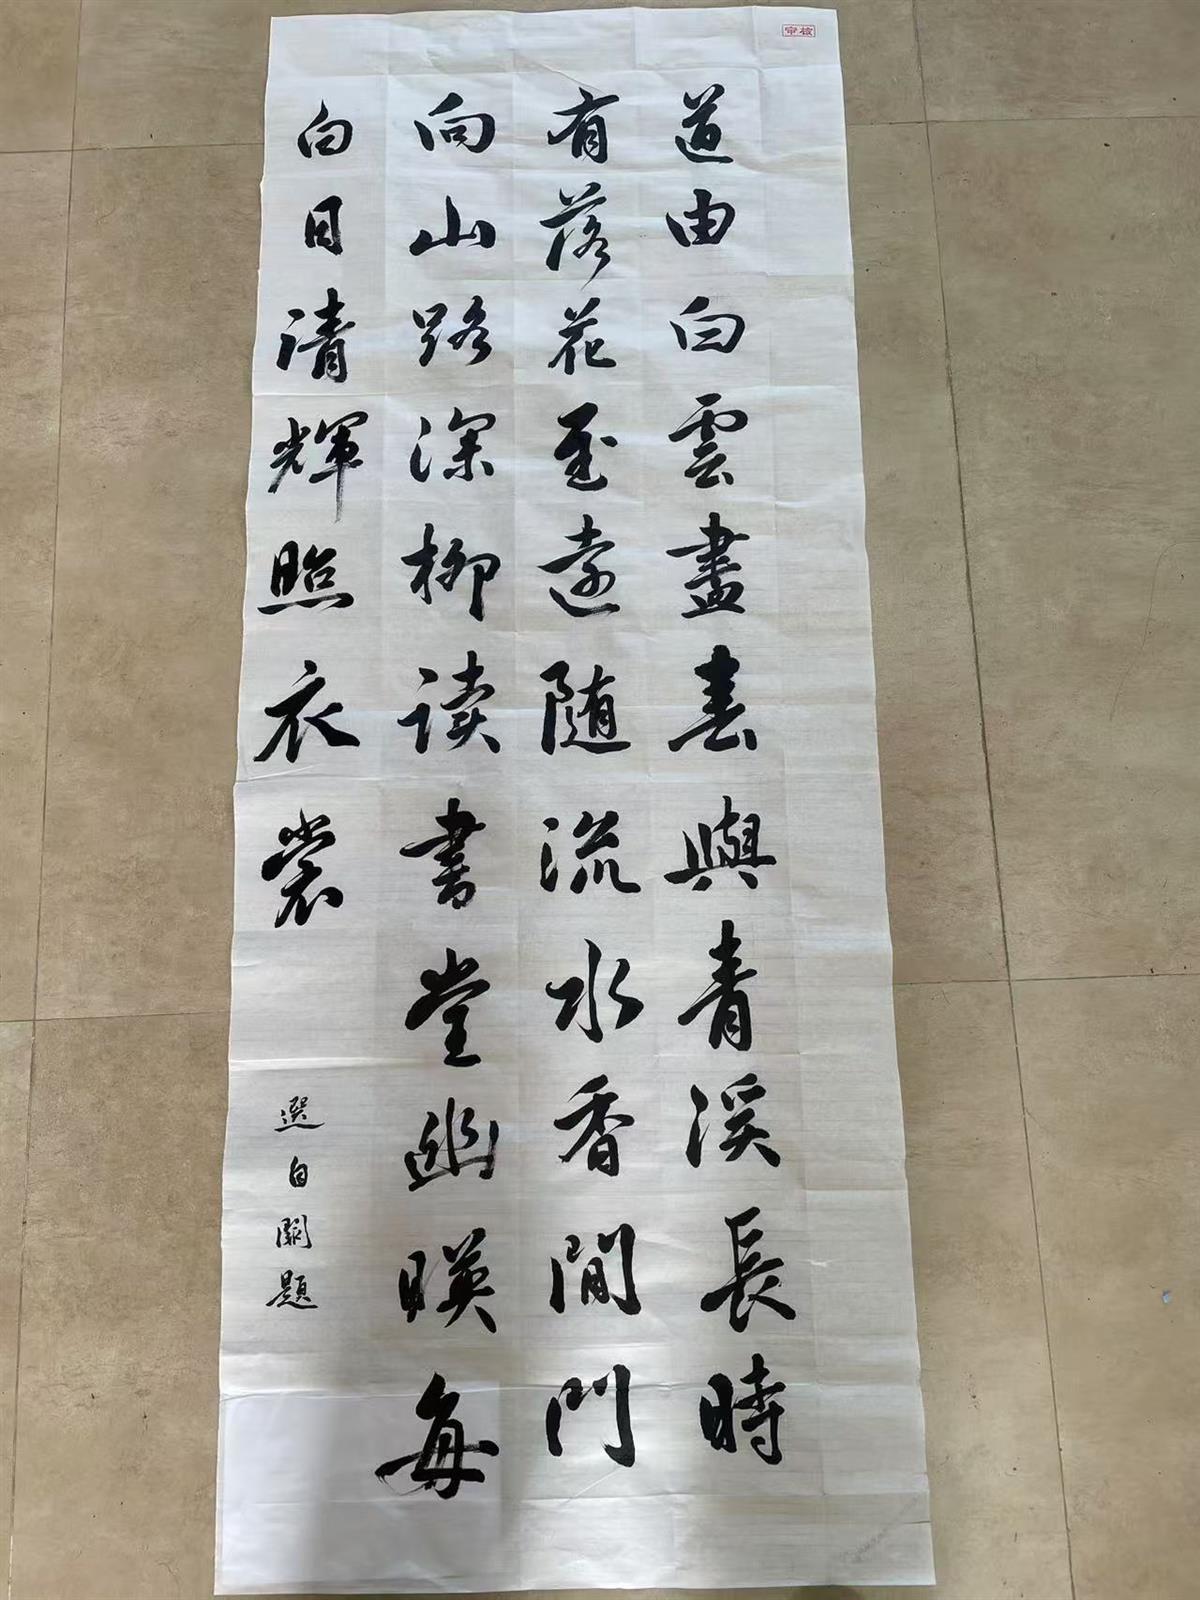 審核
道由白雲盡春與青溪長時
有落花至遠随流水香閒門
向山路深柳读書堂幽暎每
白日清輝照衣裳
選自闕題